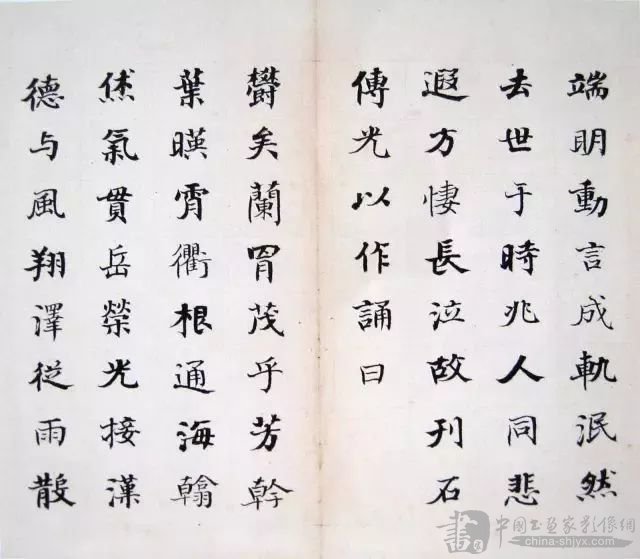 端明動言成軌泯然
去世于時兆人同悲
遐方悽長泣故刊石
傳光以作誦曰
鬱矣蘭胄茂乎芳幹
葉暎霄衢根通海翰
烋氣貫岳榮光接漢
德与風翔澤従雨散
書 中國书画家影像網
china-shjyx.com